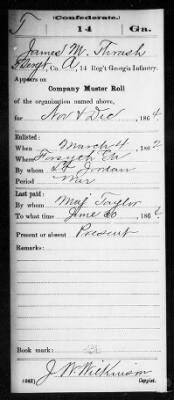 (Confederate.)
T 14 Ga.
James M. Thrash
Sergt, Co. A, 14 Reg't Georgia Infantry.
Appears on
Company Muster Roll
of the organization named above,
for Nov & Dec, 1864
Enlisted:
When March 4, 1862
Where Forsyth Ga
By whom Jordan
Period War
Last paid:
By whom Maj Taylor
To what time June 30, 186
Present or absent Present
Remarks:
Book mark:
J. W. Wilkinson
(642) Copyist.